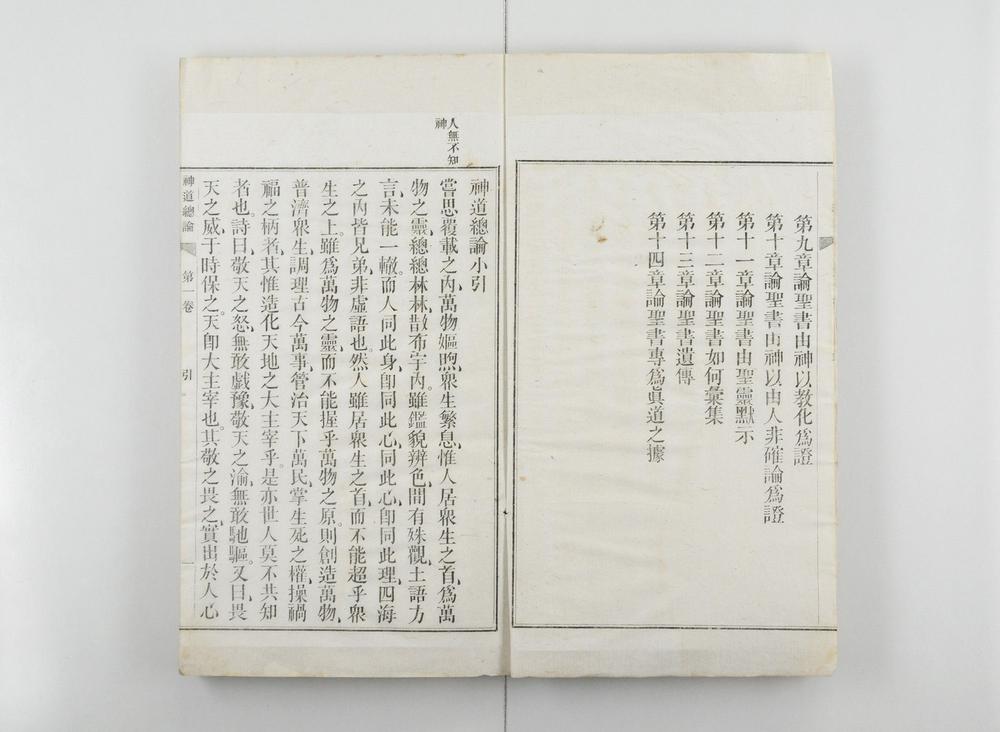 第九章論聖書由神以教化爲證
第十章論聖書由神以由人非確論爲證
第十一章論聖書由聖靈默示
第十二章論聖書如何彙集
第十三章論聖書遺傳
第十四章論聖書專爲眞道之據
人無不知
神
神道總論小引
嘗思覆載之內、萬物嫗煦、衆生繁息、惟人居衆生之首、爲萬
物之靈、總總林林、散布宇內。雖鑑貌辨色、間有殊觀、土語方
言、未能一轍。而人同此身、卽同此心、同此心、卽同此理、四海
之內皆兄弟、非虛語也。然人雖居衆生之首、而不能超乎衆
生之上。雖爲萬物之靈、而不能握乎萬物之原。則創造萬物、
普濟衆生、調理古今萬事、管治天下萬民、掌生死之權、操禍
福之柄者、其惟造化天地之大主宰乎。是亦世人莫不共知
者也。詩曰、敬天之怒、無敢戲豫、敬天之渝、無敢馳驅。又曰、畏
天之威、于時保之。天卽大主宰也。其敬之畏之、實出於人心
神道總論 第一卷 引 一